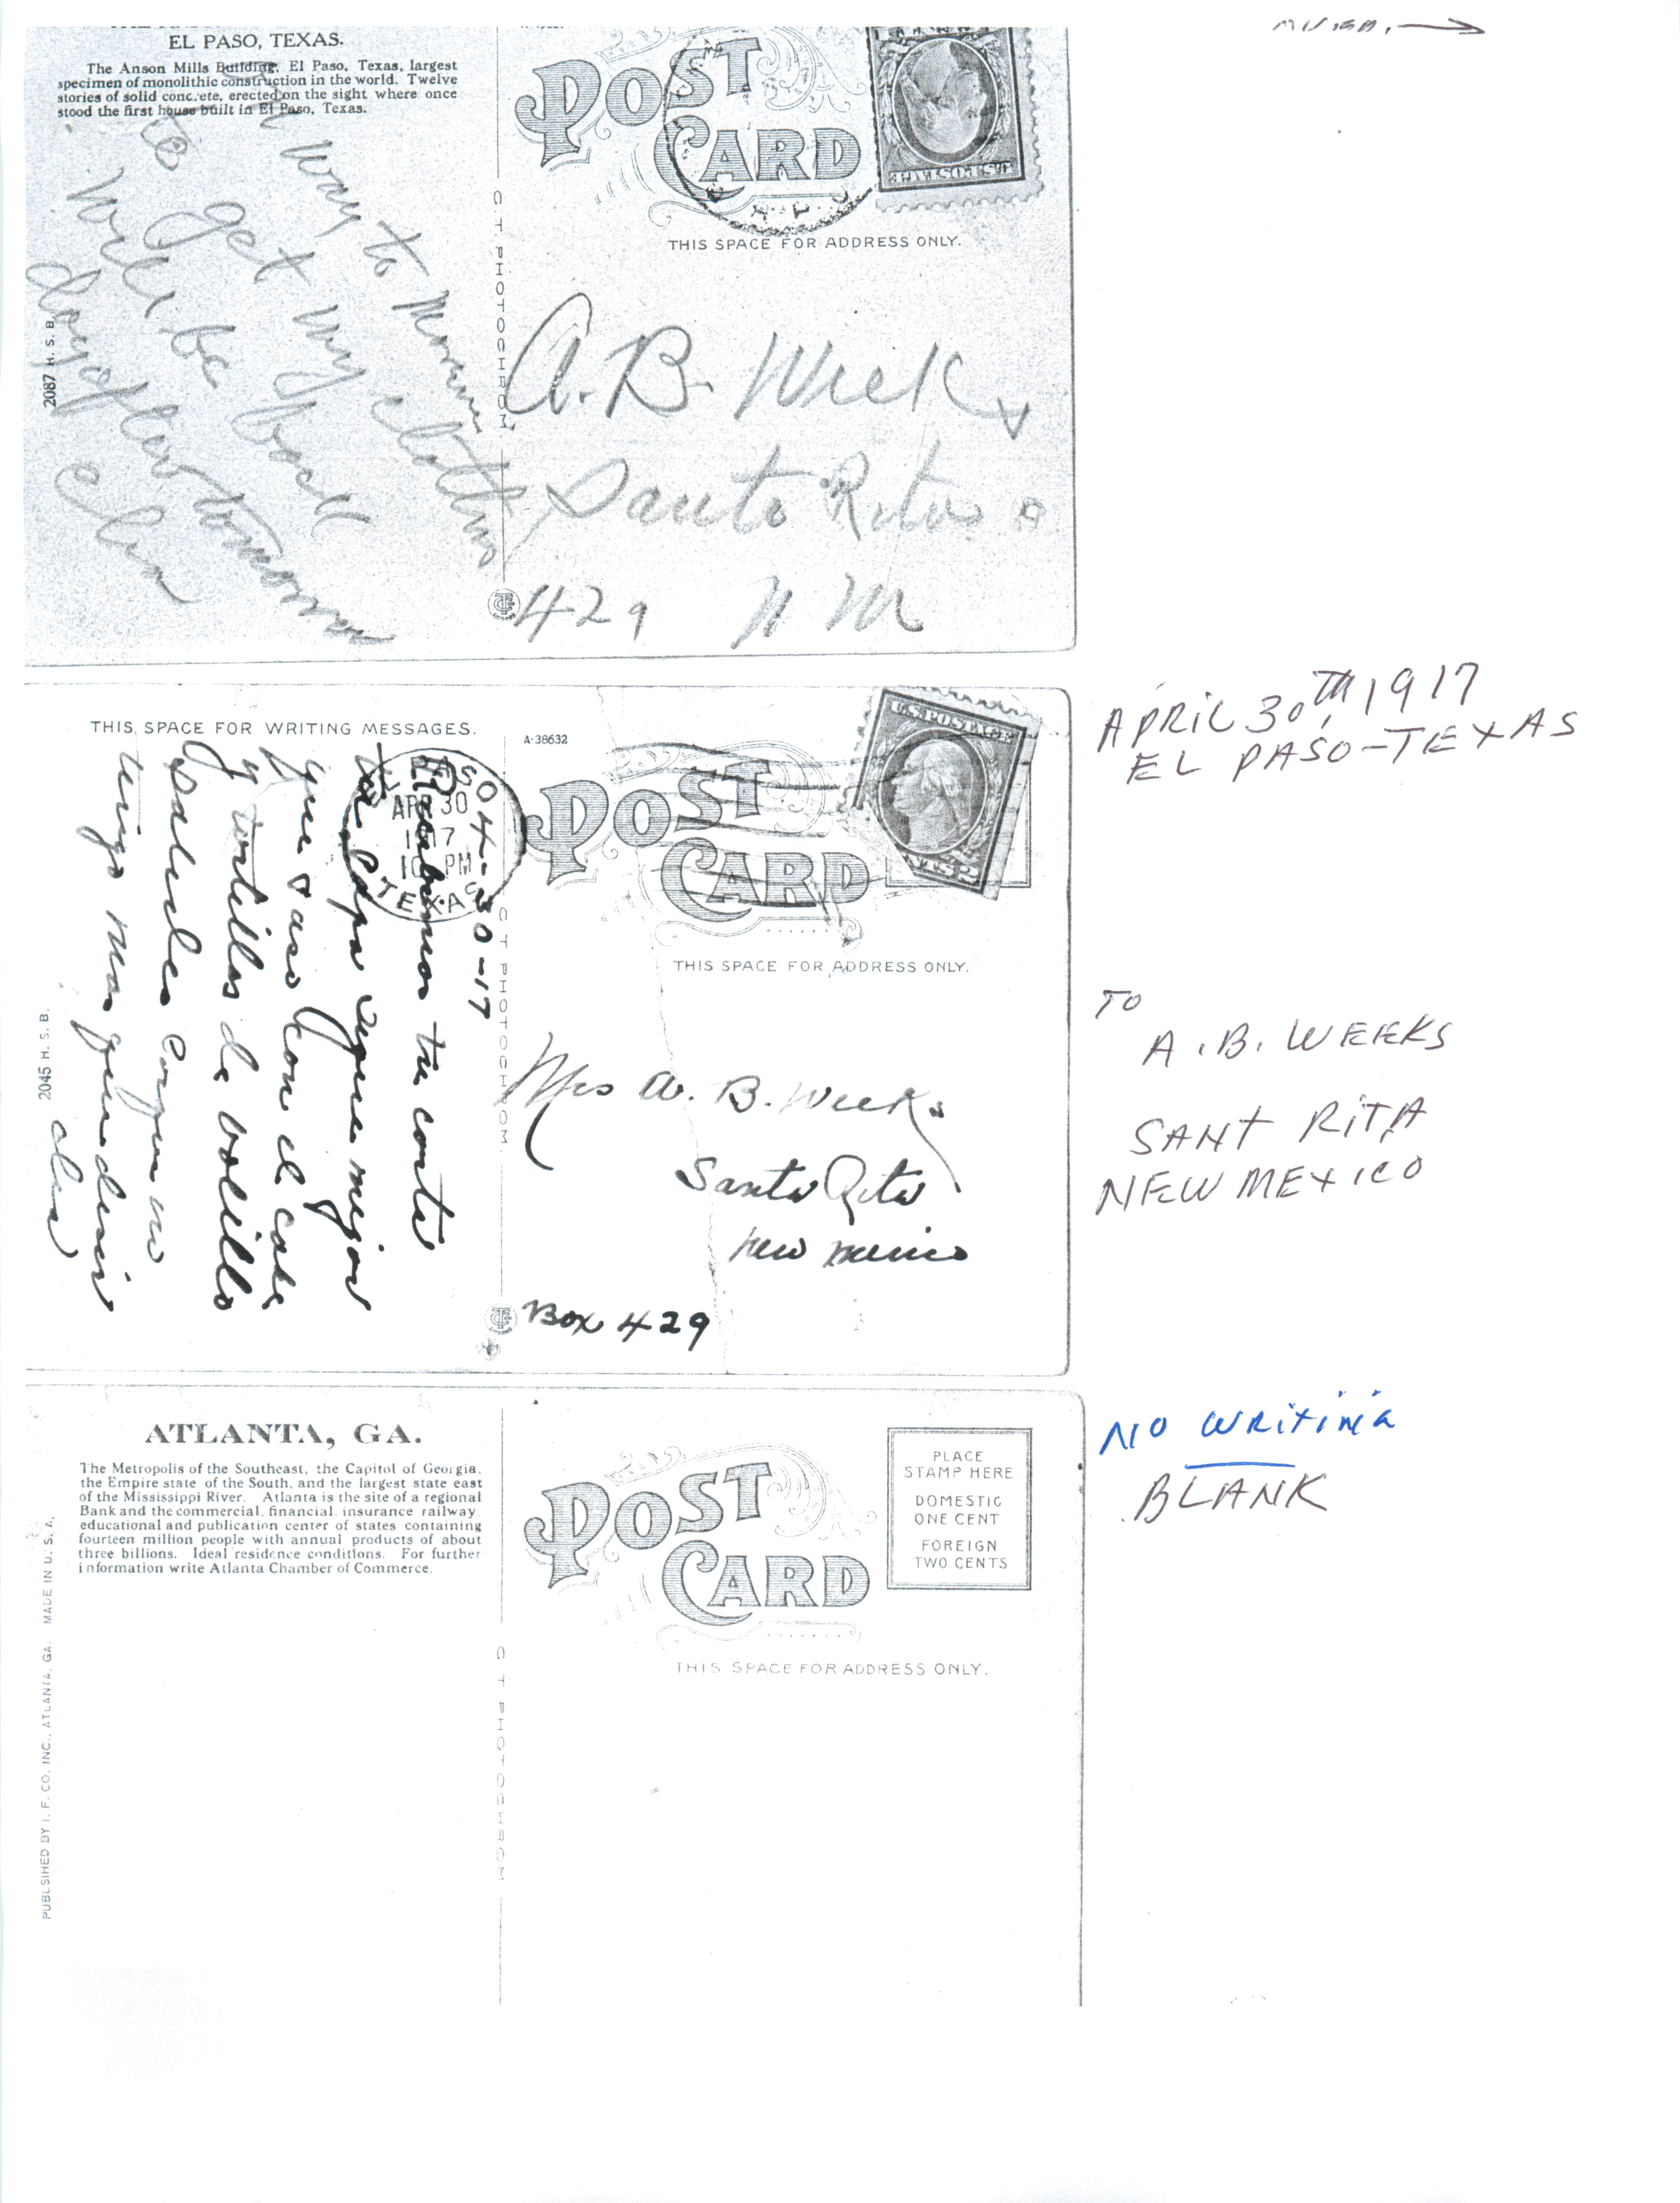 EL PASO, TEXAS.
The Anson Mills Building, El Paso, Texas, largest
specimen of monolithic construction in the world. Twelve
stories of solid concrete, erected on the sight where once
stood the first house built in El Paso, Texas.
way to
to get my clothes
will be back
day after tomorrow
2087 H. S. B.
C T PHOTOCHROM
POST
CARD
U.S. POSTAGE
THIS SPACE FOR ADDRESS ONLY.
A. B. Weeks
Santa Rita
429 N M
THIS SPACE FOR WRITING MESSAGES.
A-38632
EL PASO
APR 30
1917
10 PM
TEXAS
4-30-17
tu carta
la Capa sigue mejor
que t aso con el cake
y tortillas de bolillo
2045 H. S. B.
C T PHOTOCHROM
POST
CARD
U.S. POSTAGE
CENTS 2
THIS SPACE FOR ADDRESS ONLY.
Mrs A. B. Weeks
Santa Rita
New Mexico
Box 429
APRIL 30TH, 1917
EL PASO-TEXAS
TO
A.B. WEEKS
SANT RITA
NEW MEXICO
ATLANTA, GA.
The Metropolis of the Southeast, the Capitol of Georgia,
the Empire state of the South, and the largest state east
of the Mississippi River. Atlanta is the site of a regional
Bank and the commercial, financial, insurance railway,
educational and publication center of states containing
fourteen million people with annual products of about
three billions. Ideal residence conditions. For further
information write Atlanta Chamber of Commerce.
PUBLSIHED BY I. F. CO. INC., ATLANTA, GA. MADE IN U. S. A.
C T PHOTOCHROM
POST
CARD
PLACE
STAMP HERE
DOMESTIC
ONE CENT
FOREIGN
TWO CENTS
THIS SPACE FOR ADDRESS ONLY.
NO WRITING
BLANK